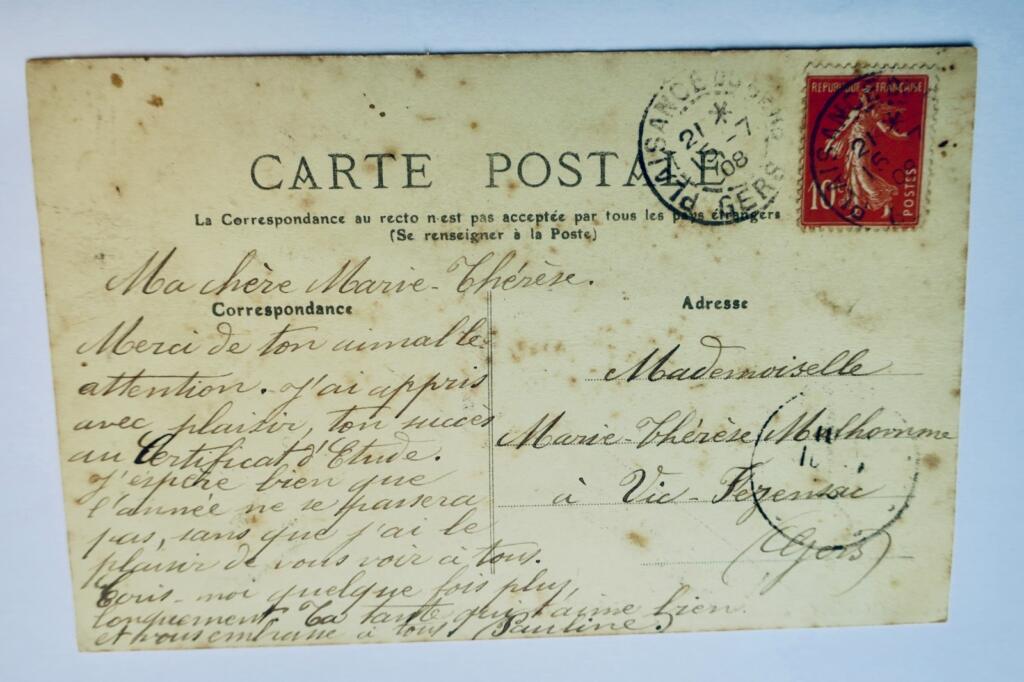 PLAISANCE DU GERS
21 * -7
08
GERS
REPUBLIQUE FRANÇAISE
10
POSTES
CARTE POSTALE
La Correspondance au recto n'est pas acceptée par tous les pays étrangers
(Se renseigner à la Poste)
Ma chère Marie-Thérèse.
Correspondance
Merci de ton aimable
attention. J'ai appris
avec plaisir, ton succès
au Certificat d'Etude.
J'espère bien que
l'année ne se passera
pas, sans que j'ai le
plaisir de vous voir à tous.
Ecris-moi quelque fois plus
longuement. Ta tante qui t'aime bien
et vous embrasse à tous Pauline.
Adresse
Mademoiselle
Marie-Thérèse Malhomme
à Vic-Fezensac
(Gers)